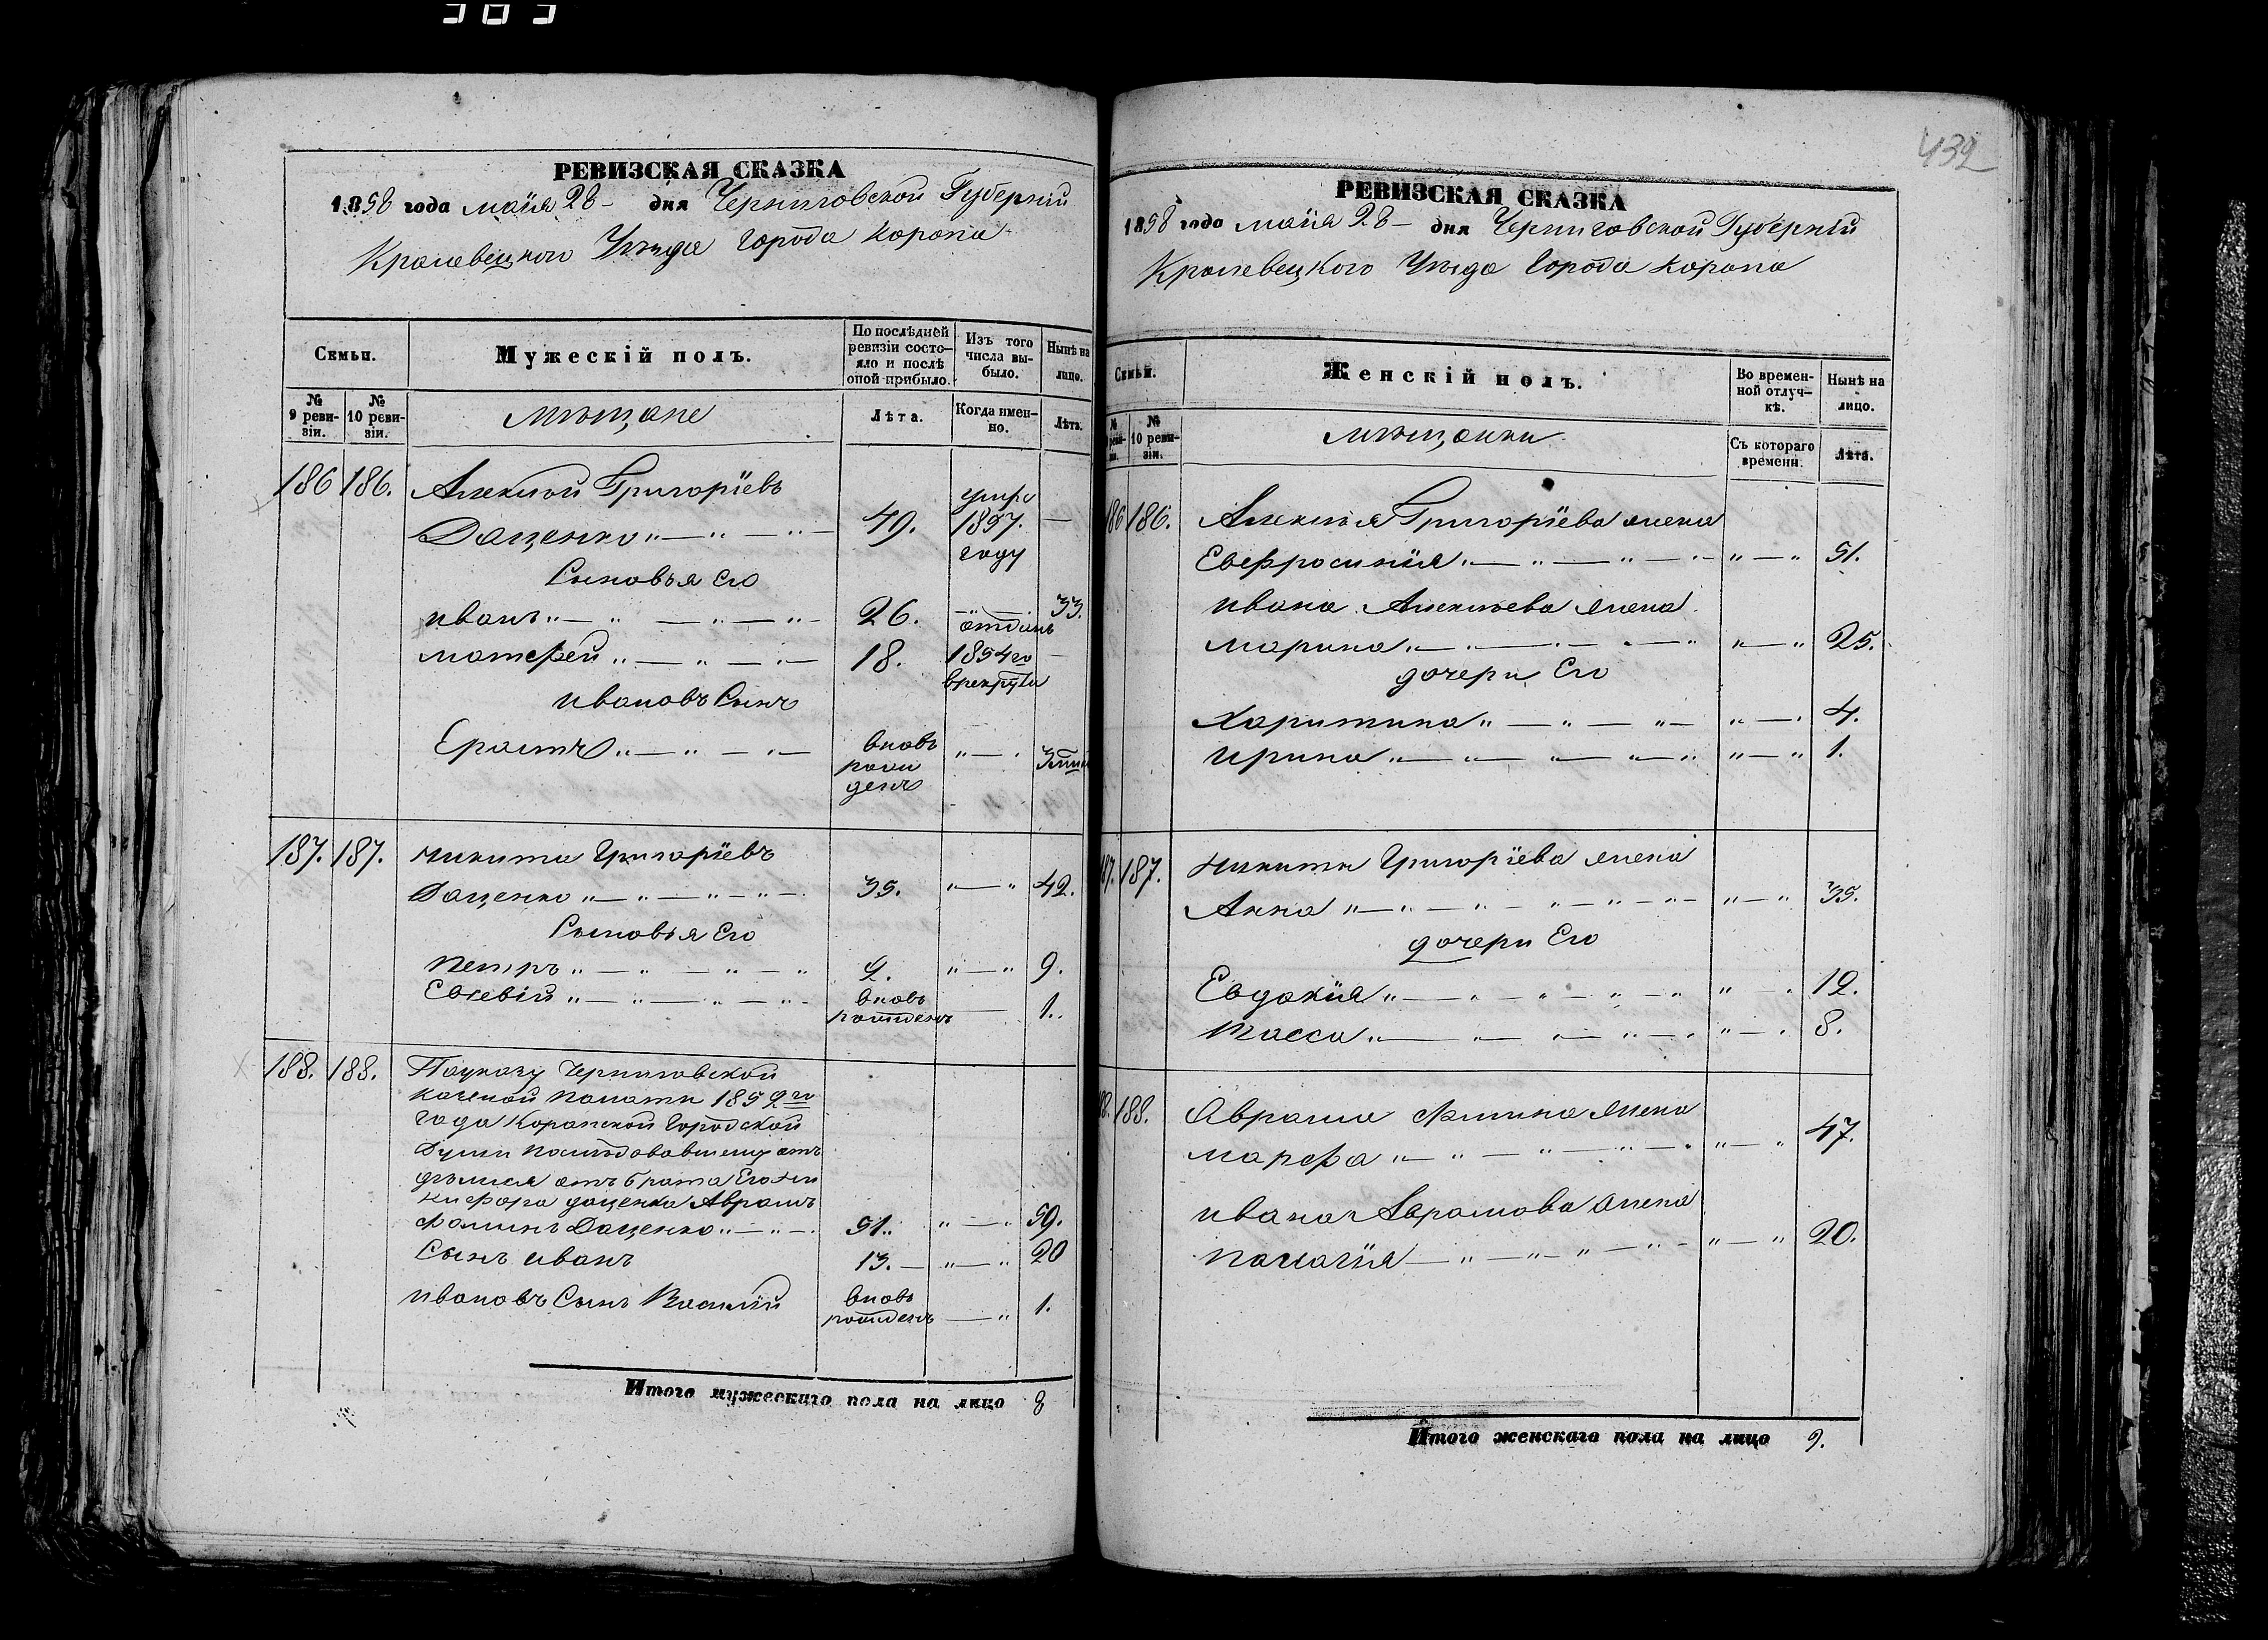 432
РЕВИЗСКАЯ СКАЗКА
1858 года маія 28 дня Черниговской Губерніи
Кролевецкого Уѣзда города Коропа
Семьи.
Мужескій полъ.
По послѣдней ревизіи состояло и послѣ оной прибыло.
Изъ того числа выбыло.
Нынѣ на лицо.
№ 9 ревизіи.
№ 10 ревизіи.
мѣщане
Лѣта.
Когда именно.
Лѣта.
186 186. Алексѣй Григоріевъ
Даценко 49. умре 1857. году —
Сыновья его
иванъ 26. — 33.
матфей 18. отданъ 1854го в рекрута —
ивановъ Сынъ
Ерастъ вновь рожденъ
187. 187. Никита Григоріевъ
Даценко 35. 42.
Сыновья Его
Петръ 2. 9.
Евсевій вновь рожденъ 1.
188. 188. По указу Черниговской
казеной Палаты 1852го
года Коропской Городской
Думы послѣдовавшему отъ
дѣлился отъ брата Его Ни
кифора даценка Аврамъ
Фоминъ Даценко 51. 59.
Сынъ иванъ 13. 20
ивановъ Сынъ вновь рожденъ 1.
Итого мужескаго пола на лицо 8
РЕВИЗСКАЯ СКАЗКА
1858 года маія 28 дня Черниговской Губерніи
Кролевецкого Уѣзда Города Коропа
Семьи.
Женскій полъ.
Во временной отлучкѣ.
Нынѣ на лицо.
№ 9 ревизіи.
№ 10 ревизіи.
мѣщанки
Съ котораго времени.
Лѣта.
186 186. Алексѣя Григоріева жена
Евфросинія 51.
ивана Алексѣева жена
марина 25.
дочери Его
Харитина 4.
ирина 1.
187. 187. Никиты Григоріева жена
Анна 35.
дочери Его
Евдокія 12.
Тасса 8.
188. 188. Аврама Фомина жена
марфа 47.
ивана Аврамова жена
пелагія 20.
Итого женскаго пола на лицо 9.